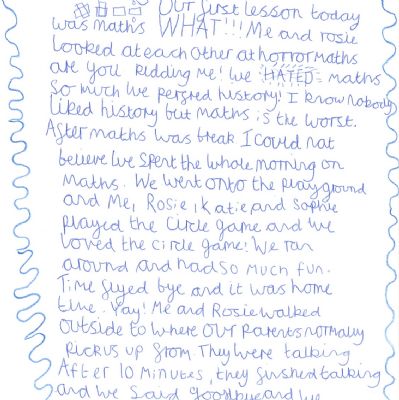 Our first lesson today
was maths WHAT!!! Me and rosie
Looked at each other at horror maths
are you kidding me! We HATED maths
So much we persred history! I know nobody
liked history but maths is the worst.
After maths was break I could not
believe we spent the whole morning on
maths. We went onto the playground
and Me, Rosie, Katie and Sophie
played the Circle game and we
loved the circle game! We ran
around and had so much fun.
Time flyed bye and it was home
time. Yay! Me and Rosie walked
outside to where our parents normaly
Pick us up from. They were talking
After 10 Minutes, they finished talking
and we said goodbye and we